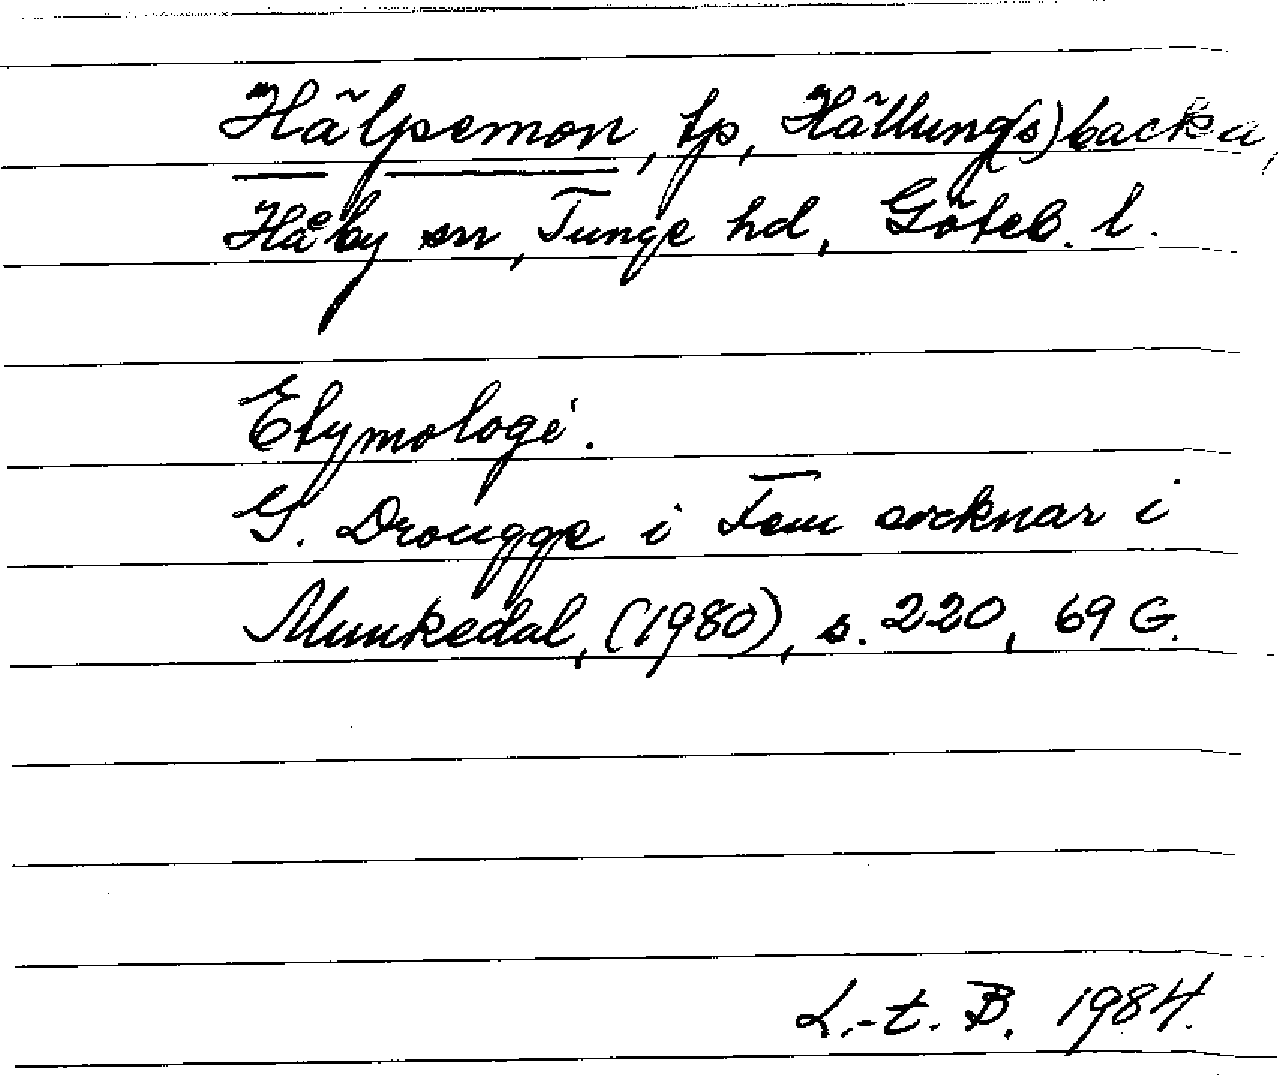 Hälpemon, tp, Hällung(s)backa,
Håby sn, Tunge hd, Göteb. l.
Etymologi.
G. Drougge i Fem socknar i
Munkedal, (1980), s. 220, 69 G.
L.-t. B. 1984.